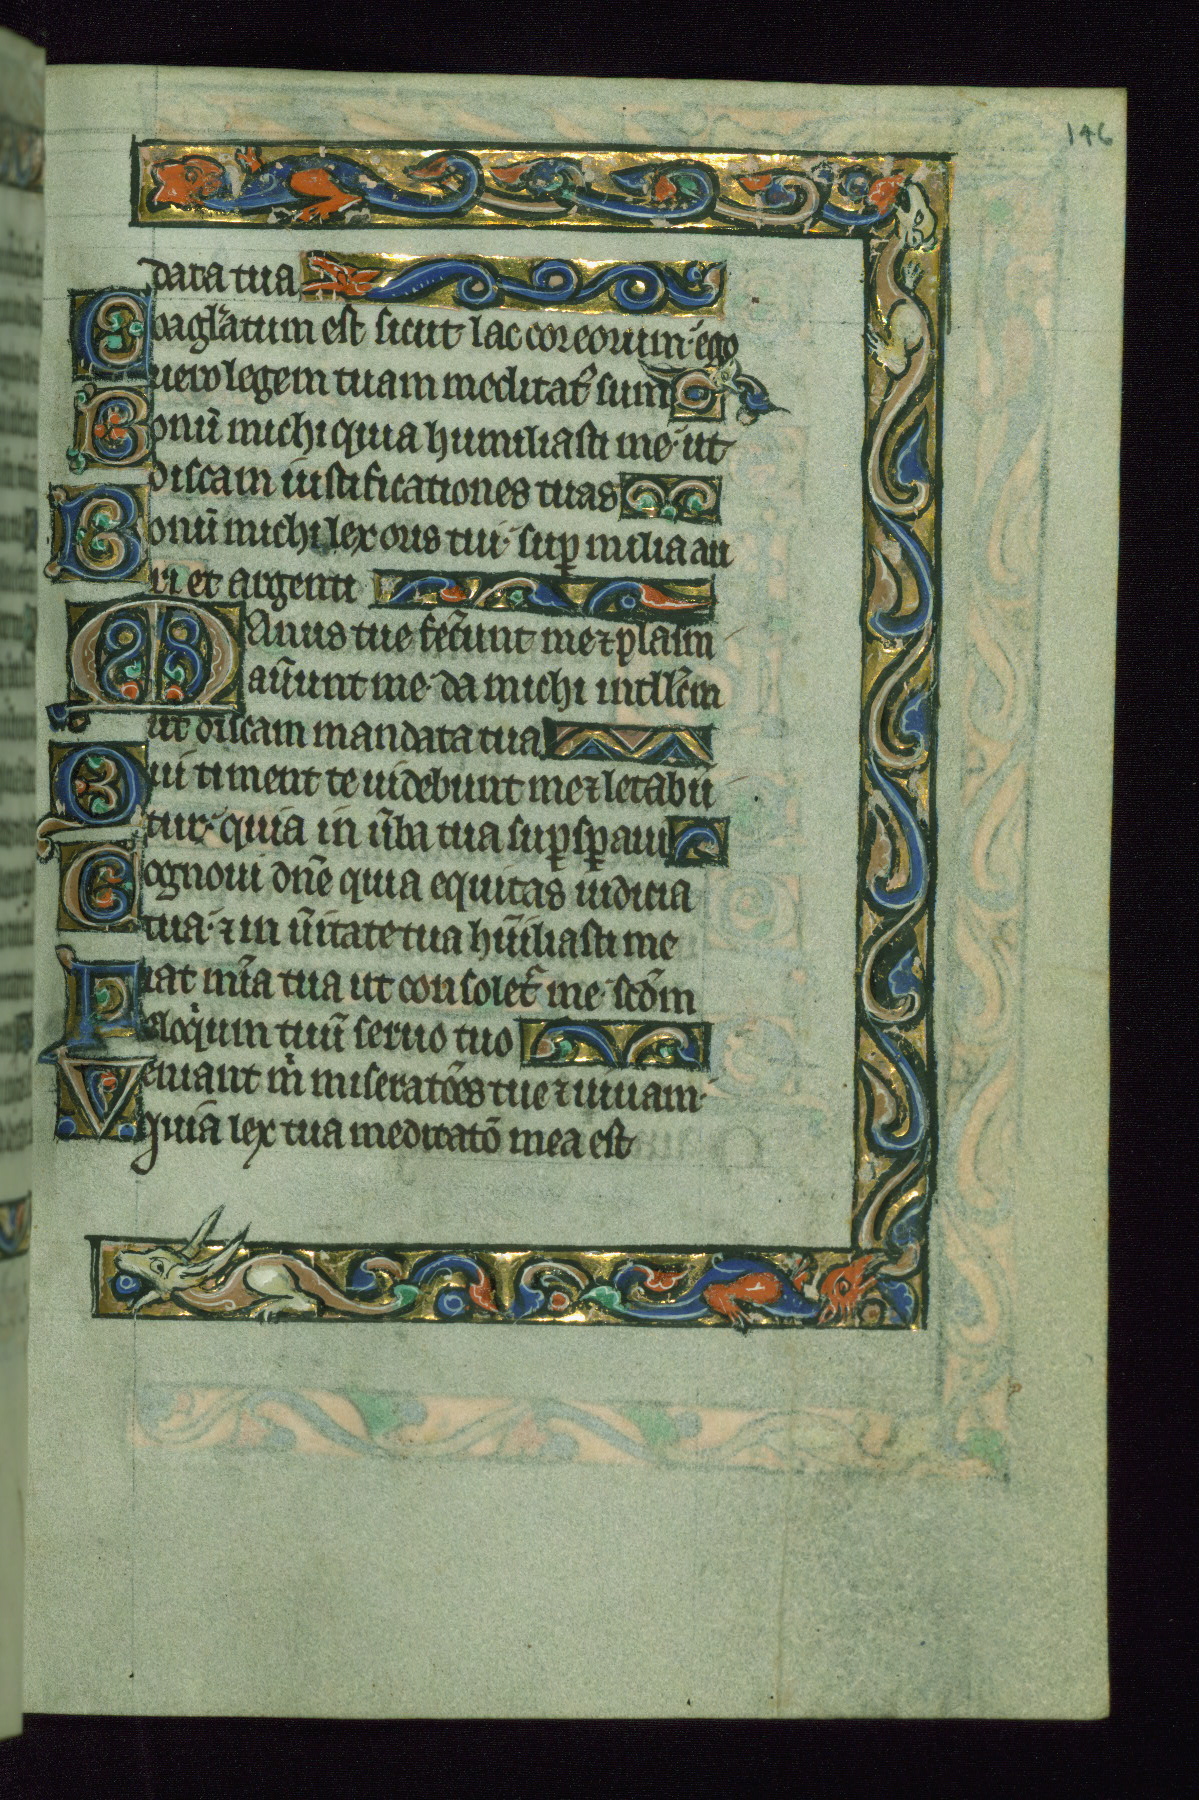 146
data tua
Coagl̃atum est sicut lac cor eorum· ego
uero legem tuam meditat᷒ sum
Bonũ michi quia humiliasti me· ut
discam iustificationes tuas
Bonũ michi lex oris tui· sup̱ milia au
ri et argenti
Manus tue fec̃unt me ⁊ plasm
aũunt me· da michi intll̃cm
ut discam mandata tua
Qui timent te uidebunt me ⁊ letabũ
tur· quia in ũba tua sup̱sp̱aui
Cognoui dñe quia equitas iudicia
tua· ⁊ in ũitate tua hũiliasti me
Fiat mĩa tua ut consolet᷒ me· scd̃m
eloq̇uim tuũ seruo tuo
Veniant ṁ miseratões tue ⁊ uiuam·
quia lex tua meditatõ mea est